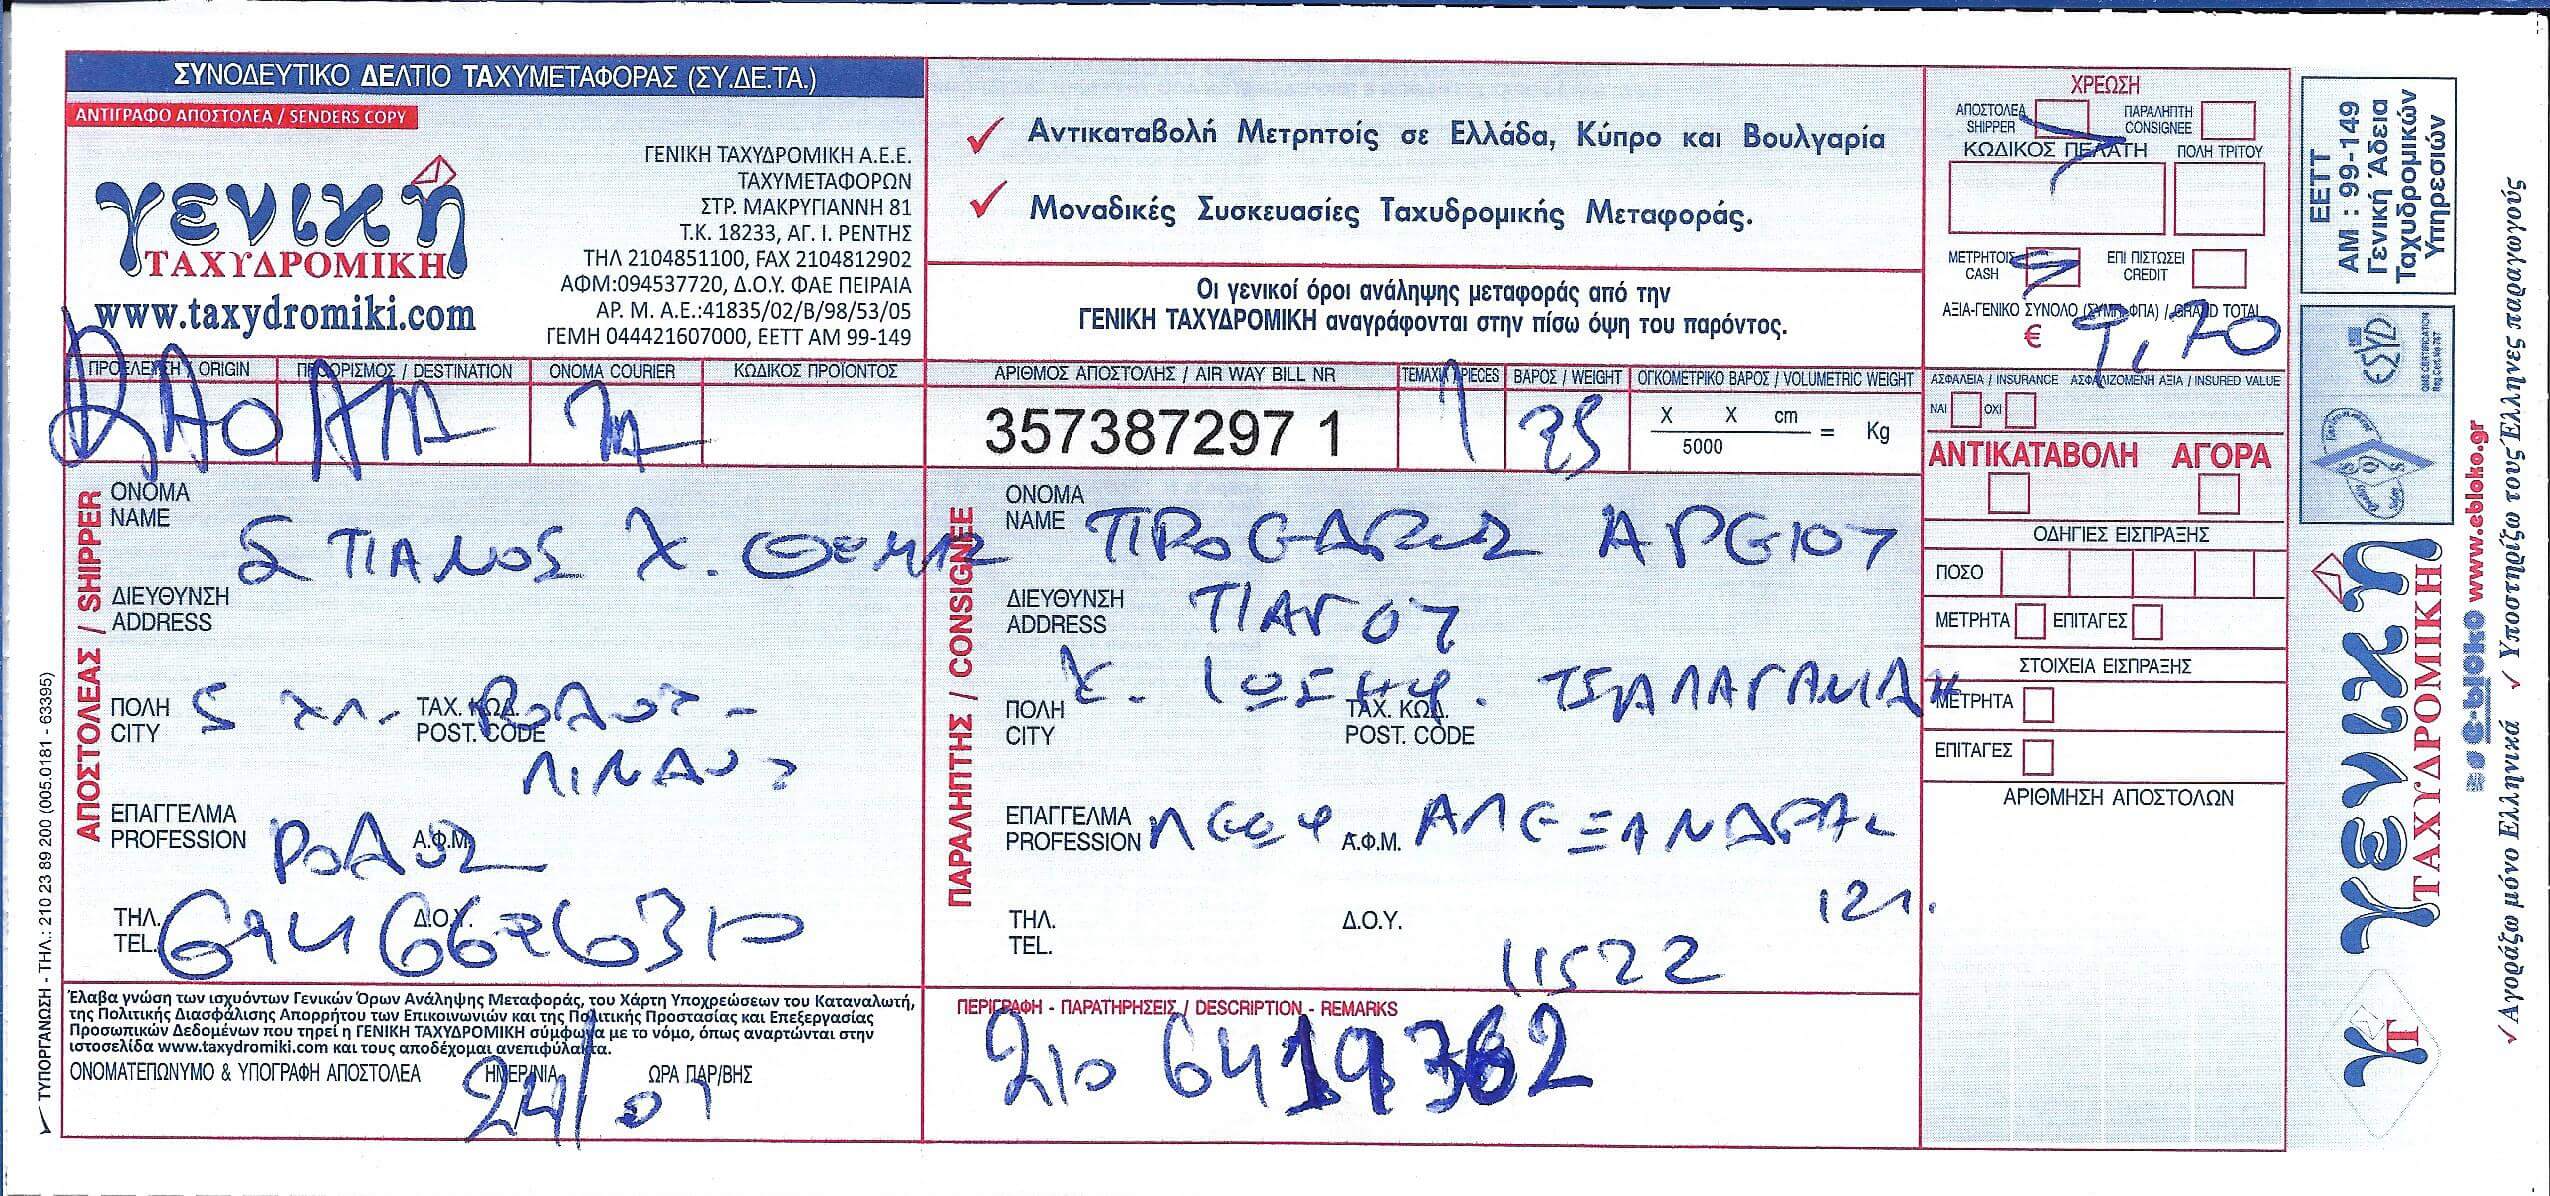 ΣΥΝΟΔΕΥΤΙΚΟ ΔΕΛΤΙΟ ΤΑΧΥΜΕΤΑΦΟΡΑΣ (ΣΥ.ΔΕ.ΤΑ.)
ΑΝΤΙΓΡΑΦΟ ΑΠΟΣΤΟΛΕΑ / SENDERS COPY
γενική
ΤΑΧΥΔΡΟΜΙΚΗ
www.taxydromiki.com
ΓΕΝΙΚΗ ΤΑΧΥΔΡΟΜΙΚΗ Α.Ε.Ε.
ΤΑΧΥΜΕΤΑΦΟΡΩΝ
ΣΤΡ. ΜΑΚΡΥΓΙΑΝΝΗ 81
Τ.Κ. 18233, ΑΓ. Ι. ΡΕΝΤΗΣ
ΤΗΛ 2104851100, FAX 2104812902
ΑΦΜ:094537720, Δ.Ο.Υ. ΦΑΕ ΠΕΙΡΑΙΑ
ΑΡ. Μ. Α.Ε.:41835/02/Β/98/53/05
ΓΕΜΗ 044421607000, ΕΕΤΤ ΑΜ 99-149
Αντικαταβολή Μετρητοίς σε Ελλάδα, Κύπρο και Βουλγαρία
Μοναδικές Συσκευασίες Ταχυδρομικής Μεταφοράς.
Οι γενικοί όροι ανάληψης μεταφοράς από την
ΓΕΝΙΚΗ ΤΑΧΥΔΡΟΜΙΚΗ αναγράφονται στην πίσω όψη του παρόντος.
ΧΡΕΩΣΗ
ΑΠΟΣΤΟΛΕΑ ΠΑΡΑΛΗΠΤΗ
SHIPPER CONSIGNEE
ΚΩΔΙΚΟΣ ΠΕΛΑΤΗ ΠΟΛΗ ΤΡΙΤΟΥ
ΜΕΤΡΗΤΟΙΣ ΕΠΙ ΠΙΣΤΩΣΕΙ
CASH CREDIT
ΑΞΙΑ-ΓΕΝΙΚΟ ΣΥΝΟΛΟ (ΣΥΜΠ. ΦΠΑ) / GRAND TOTAL
€ 9,70
ΑΣΦΑΛΕΙΑ / INSURANCE ΑΣΦΑΛΙΖΟΜΕΝΗ ΑΞΙΑ / INSURED VALUE
ΝΑΙ ΟΧΙ
ΑΝΤΙΚΑΤΑΒΟΛΗ ΑΓΟΡΑ
ΟΔΗΓΙΕΣ ΕΙΣΠΡΑΞΗΣ
ΠΟΣΟ
ΜΕΤΡΗΤΑ ΕΠΙΤΑΓΕΣ
ΣΤΟΙΧΕΙΑ ΕΙΣΠΡΑΞΗΣ
ΜΕΤΡΗΤΑ
ΕΠΙΤΑΓΕΣ
ΑΡΙΘΜΗΣΗ ΑΠΟΣΤΟΛΩΝ
ΠΡΟΕΛΕΥΣΗ / ORIGIN ΠΡΟΟΡΙΣΜΟΣ / DESTINATION ΟΝΟΜΑ COURIER ΚΩΔΙΚΟΣ ΠΡΟΪΟΝΤΟΣ
ΑΡΙΘΜΟΣ ΑΠΟΣΤΟΛΗΣ / AIR WAY BILL NR ΤΕΜΑΧΙΑ / PIECES ΒΑΡΟΣ / WEIGHT ΟΓΚΟΜΕΤΡΙΚΟ ΒΑΡΟΣ / VOLUMETRIC WEIGHT
357387297 1 1
X X cm
5000 = Kg
ΑΠΟΣΤΟΛΕΑΣ / SHIPPER
ΟΝΟΜΑ
NAME ΣΠΑΝΟΣ Χ. ΘΕΜΗΣ
ΔΙΕΥΘΥΝΣΗ
ADDRESS
ΠΟΛΗ ΤΑΧ. ΚΩΔ.
CITY POST. CODE
5 ΧΛΜ. ΡΟΔΟΥ -
ΛΙΝΔΟΥ
ΕΠΑΓΓΕΛΜΑ
PROFESSION Α.Φ.Μ.
ΡΟΔΟΣ
ΤΗΛ. Δ.Ο.Υ.
TEL.
ΠΑΡΑΛΗΠΤΗΣ / CONSIGNEE
ΟΝΟΜΑ
NAME ΠΡΟΕΔΡΟΣ ΑΡΕΙΟΥ
ΔΙΕΥΘΥΝΣΗ
ADDRESS ΠΑΓΟΥ
Χ. ΙΩΣΗΦ. ΤΣΑΛΑΓΑΝΙΔΗ
ΠΟΛΗ ΤΑΧ. ΚΩΔ.
CITY POST. CODE
ΕΠΑΓΓΕΛΜΑ
PROFESSION Α.Φ.Μ.
ΛΕΩΦ. ΑΛΕΞΑΝΔΡΑΣ
121.
ΤΗΛ. Δ.Ο.Υ.
TEL.
11522
Έλαβα γνώση των ισχυόντων Γενικών Όρων Ανάληψης Μεταφοράς, του Χάρτη Υποχρεώσεων του Καταναλωτή,
της Πολιτικής Διασφάλισης Απορρήτου των Επικοινωνιών και της Πολιτικής Προστασίας και Επεξεργασίας
Προσωπικών Δεδομένων που τηρεί η ΓΕΝΙΚΗ ΤΑΧΥΔΡΟΜΙΚΗ σύμφωνα με το νόμο, όπως αναρτώνται στην
ιστοσελίδα www.taxydromiki.com και τους αποδέχομαι ανεπιφύλακτα.
ΟΝΟΜΑΤΕΠΩΝΥΜΟ & ΥΠΟΓΡΑΦΗ ΑΠΟΣΤΟΛΕΑ ΗΜΕΡ/ΝΙΑ ΩΡΑ ΠΑΡ/ΒΗΣ
24/01
ΠΕΡΙΓΡΑΦΗ - ΠΑΡΑΤΗΡΗΣΕΙΣ / DESCRIPTION - REMARKS
210 6419362
ΤΥΠΟΡΓΑΝΩΣΗ - ΤΗΛ.: 210 23 89 200 (005.0181 - 63395)
ΕΕΤΤ
ΑΜ : 99-149
Γενική Άδεια
Ταχυδρομικών
Υπηρεσιών
ESYD
γενική
ΤΑΧΥΔΡΟΜΙΚΗ
e-bloko www.ebloko.gr
Αγοράζω μόνο Ελληνικά Υποστηρίζω τους Έλληνες παραγωγούς